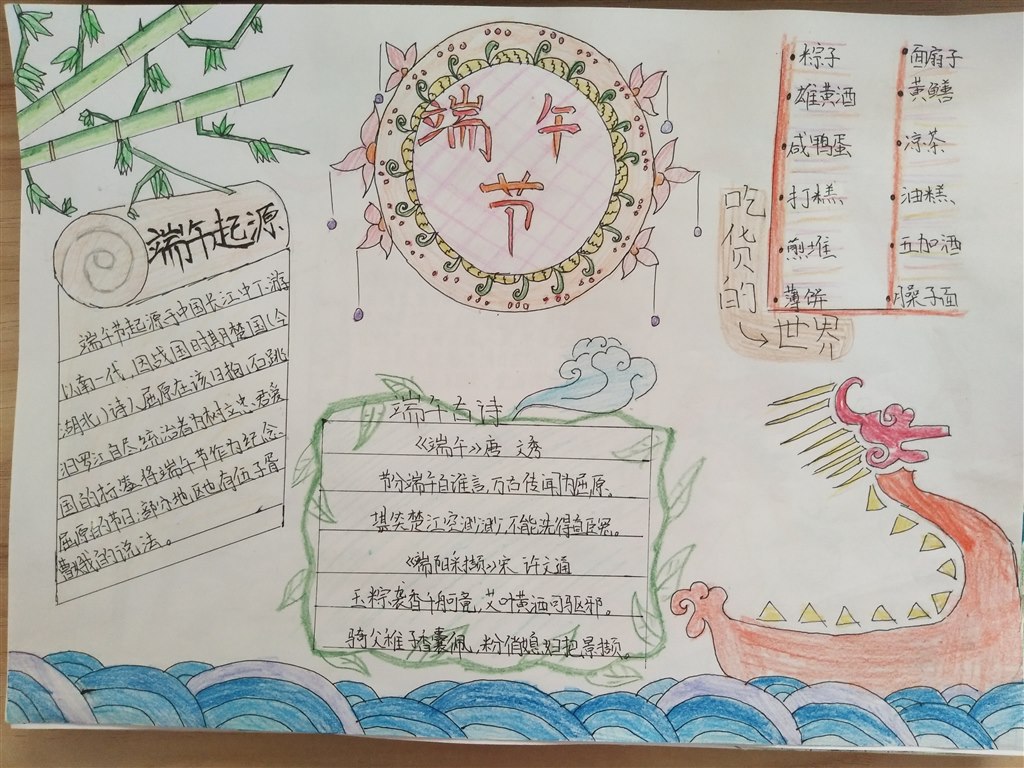 端午节
端午起源
端午节起源于中国长江中下游
以南一代，因战国时期楚国(今
湖北)诗人屈原在该日抱石跳
汨罗江自尽,统治者为树立忠君爱
国的标签将端午节作为纪念
屈原的节日;部分地区也有伍子胥
曹娥的说法。
端午古诗
《端午》唐 文秀
节分端午自谁言,万古传闻为屈原、
堪笑楚江空渺渺,不能洗得直臣冤。
《端阳采撷》宋 许文通
玉粽袭香千舸竞,艾叶黄酒可驱邪。
骑父稚子香囊佩,粉俏媳妇把景撷。
吃货的
世界
粽子
雄黄酒
咸鸭蛋
打糕
煎堆
薄饼
面扇子
黄鳝
凉茶
油糕
五加酒
臊子面